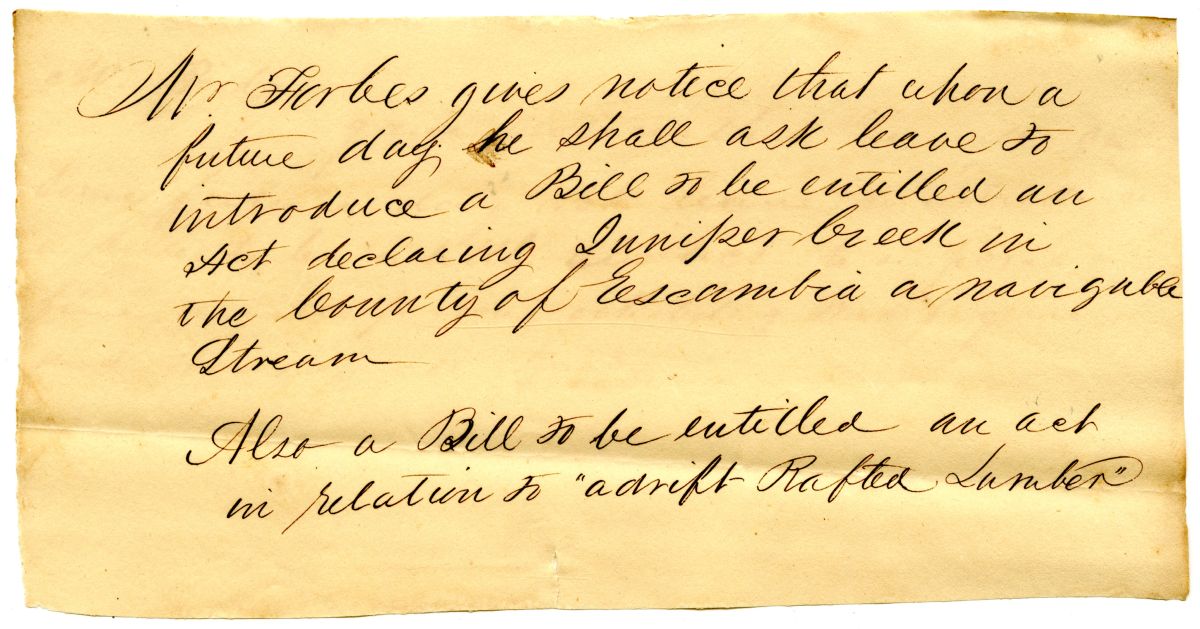 Mr Forbes gives notice that upon a
future day he shall ask leave to
introduce a Bill to be entitled an
Act declaring Juniper Creek in
the County of Escambia a navigable
Stream
Also a Bill to be entitled an act
in relation to "adrift Rafted Lumber"